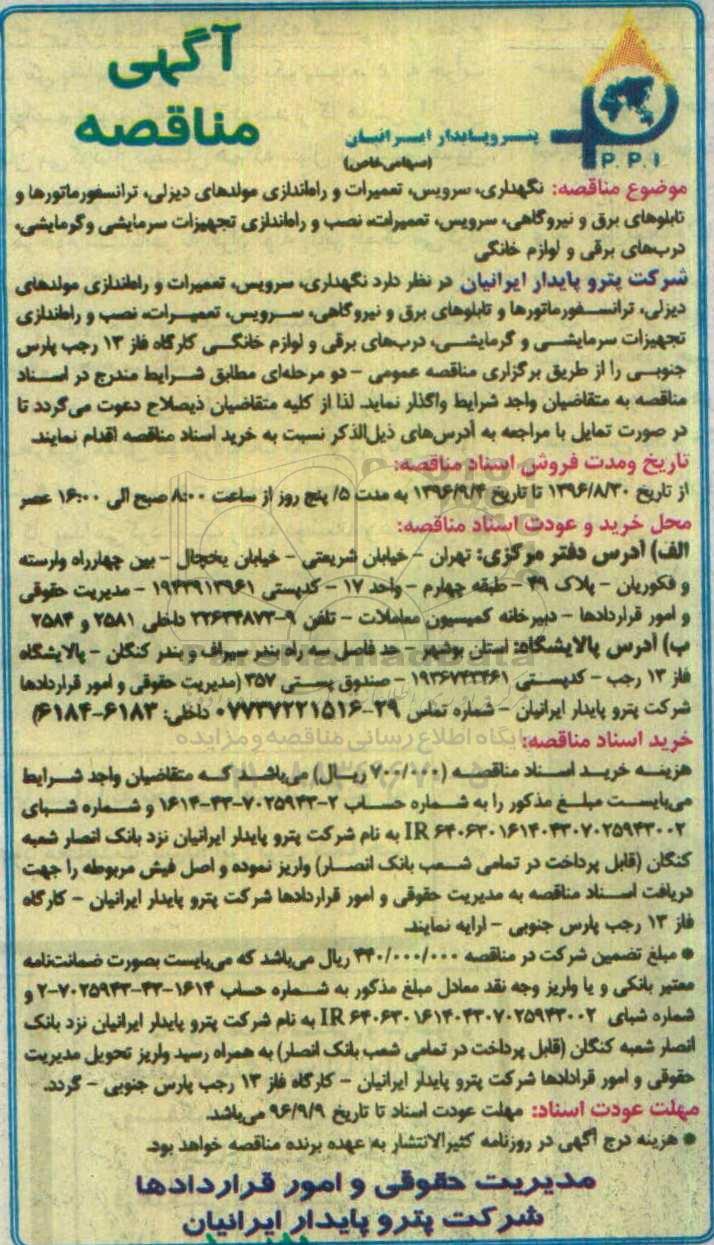 آگهی
مناقصه
پتروپایدار ایرانیان
(سهامی خاص)
P.P.I
موضوع مناقصه: نگهداری، سرویس، تعمیرات و راه‌اندازی مولدهای دیزلی، ترانسفورماتورها و
تابلوهای برق و نیروگاهی، سرویس، تعمیرات، نصب و راه‌اندازی تجهیزات سرمایشی وگرمایشی،
درب‌های برقی و لوازم خانگی
شرکت پترو پایدار ایرانیان در نظر دارد نگهداری، سرویس، تعمیرات و راه‌اندازی مولدهای
دیزلی، ترانسفورماتورها و تابلوهای برق و نیروگاهی، سرویس، تعمیرات، نصب و راه‌اندازی
تجهیزات سرمایشی و گرمایشی، درب‌های برقی و لوازم خانگی کارگاه فاز ۱۳ رجب پارس
جنوبی را از طریق برگزاری مناقصه عمومی - دو مرحله‌ای مطابق شرایط مندرج در اسناد
مناقصه به متقاضیان واجد شرایط واگذار نماید. لذا از کلیه متقاضیان ذیصلاح دعوت می‌گردد تا
در صورت تمایل با مراجعه به آدرس‌های ذیل‌الذکر نسبت به خرید اسناد مناقصه اقدام نمایند.
تاریخ ومدت فروش اسناد مناقصه:
از تاریخ ۱۳۹۶/۸/۳۰ تا تاریخ ۱۳۹۶/۹/۴ به مدت ۵/ پنج روز از ساعت ۸:۰۰ صبح الی ۱۶:۰۰ عصر
محل خرید و عودت اسناد مناقصه:
الف) آدرس دفتر مرکزی: تهران - خیابان شریعتی - خیابان یخچال - بین چهارراه وارسته
و فکوریان - پلاک ۴۹ - طبقه چهارم - واحد ۱۷ - کدپستی ۱۹۴۳۹۱۳۹۶۱ - مدیریت حقوقی
و امور قراردادها - دبیرخانه کمیسیون معاملات - تلفن ۹-۲۲۶۳۴۸۷۳ داخلی ۲۵۸۱ و ۲۵۸۴
ب) آدرس پالایشگاه: استان بوشهر - حد فاصل سه راه بندر سیراف و بندر کنگان - پالایشگاه
فاز ۱۳ رجب - کدپستی ۱۹۳۶۷۴۳۴۶۱ - صندوق پستی ۳۵۷ (مدیریت حقوقی و امور قراردادها
شرکت پترو پایدار ایرانیان - شماره تماس ۲۹-۰۷۷۳۷۲۲۱۵۱۶ داخلی: ۶۱۸۳-۶۱۸۴)
خرید اسناد مناقصه:
هزینه خرید اسناد مناقصه (۷۰۰/۰۰۰ ریال) می‌باشد که متقاضیان واجد شرایط
می‌بایست مبلغ مذکور را به شماره حساب ۲-۷۰۲۵۹۴۳-۴۳-۱۶۱۴ و شماره شبای
IR ۶۴۰۶۳۰۱۶۱۴۰۴۳۰۷۰۲۵۹۴۳۰۰۲ به نام شرکت پترو پایدار ایرانیان نزد بانک انصار شعبه
کنگان (قابل پرداخت در تمامی شعب بانک انصار) واریز نموده و اصل فیش مربوطه را جهت
دریافت اسناد مناقصه به مدیریت حقوقی و امور قراردادها شرکت پترو پایدار ایرانیان - کارگاه
فاز ۱۳ رجب پارس جنوبی - ارایه نمایند.
* مبلغ تضمین شرکت در مناقصه ۴۴۰/۰۰۰/۰۰۰ ریال می‌باشد که می‌بایست بصورت ضمانت‌نامه
معتبر بانکی و یا واریز وجه نقد معادل مبلغ مذکور به شماره حساب ۱۶۱۴-۴۳-۷۰۲۵۹۴۳-۲ و
شماره شبای IR ۶۴۰۶۳۰۱۶۱۴۰۴۳۰۷۰۲۵۹۴۳۰۰۲ به نام شرکت پترو پایدار ایرانیان نزد بانک
انصار شعبه کنگان (قابل پرداخت در تمامی شعب بانک انصار) به همراه رسید واریز تحویل مدیریت
حقوقی و امور قرادادها شرکت پترو پایدار ایرانیان - کارگاه فاز ۱۳ رجب پارس جنوبی - گردد.
مهلت عودت اسناد: مهلت عودت اسناد تا تاریخ ۹۶/۹/۹ می‌باشد.
* هزینه درج آگهی در روزنامه کثیرالانتشار به عهده برنده مناقصه خواهد بود.
مدیریت حقوقی و امور قراردادها
شرکت پترو پایدار ایرانیان